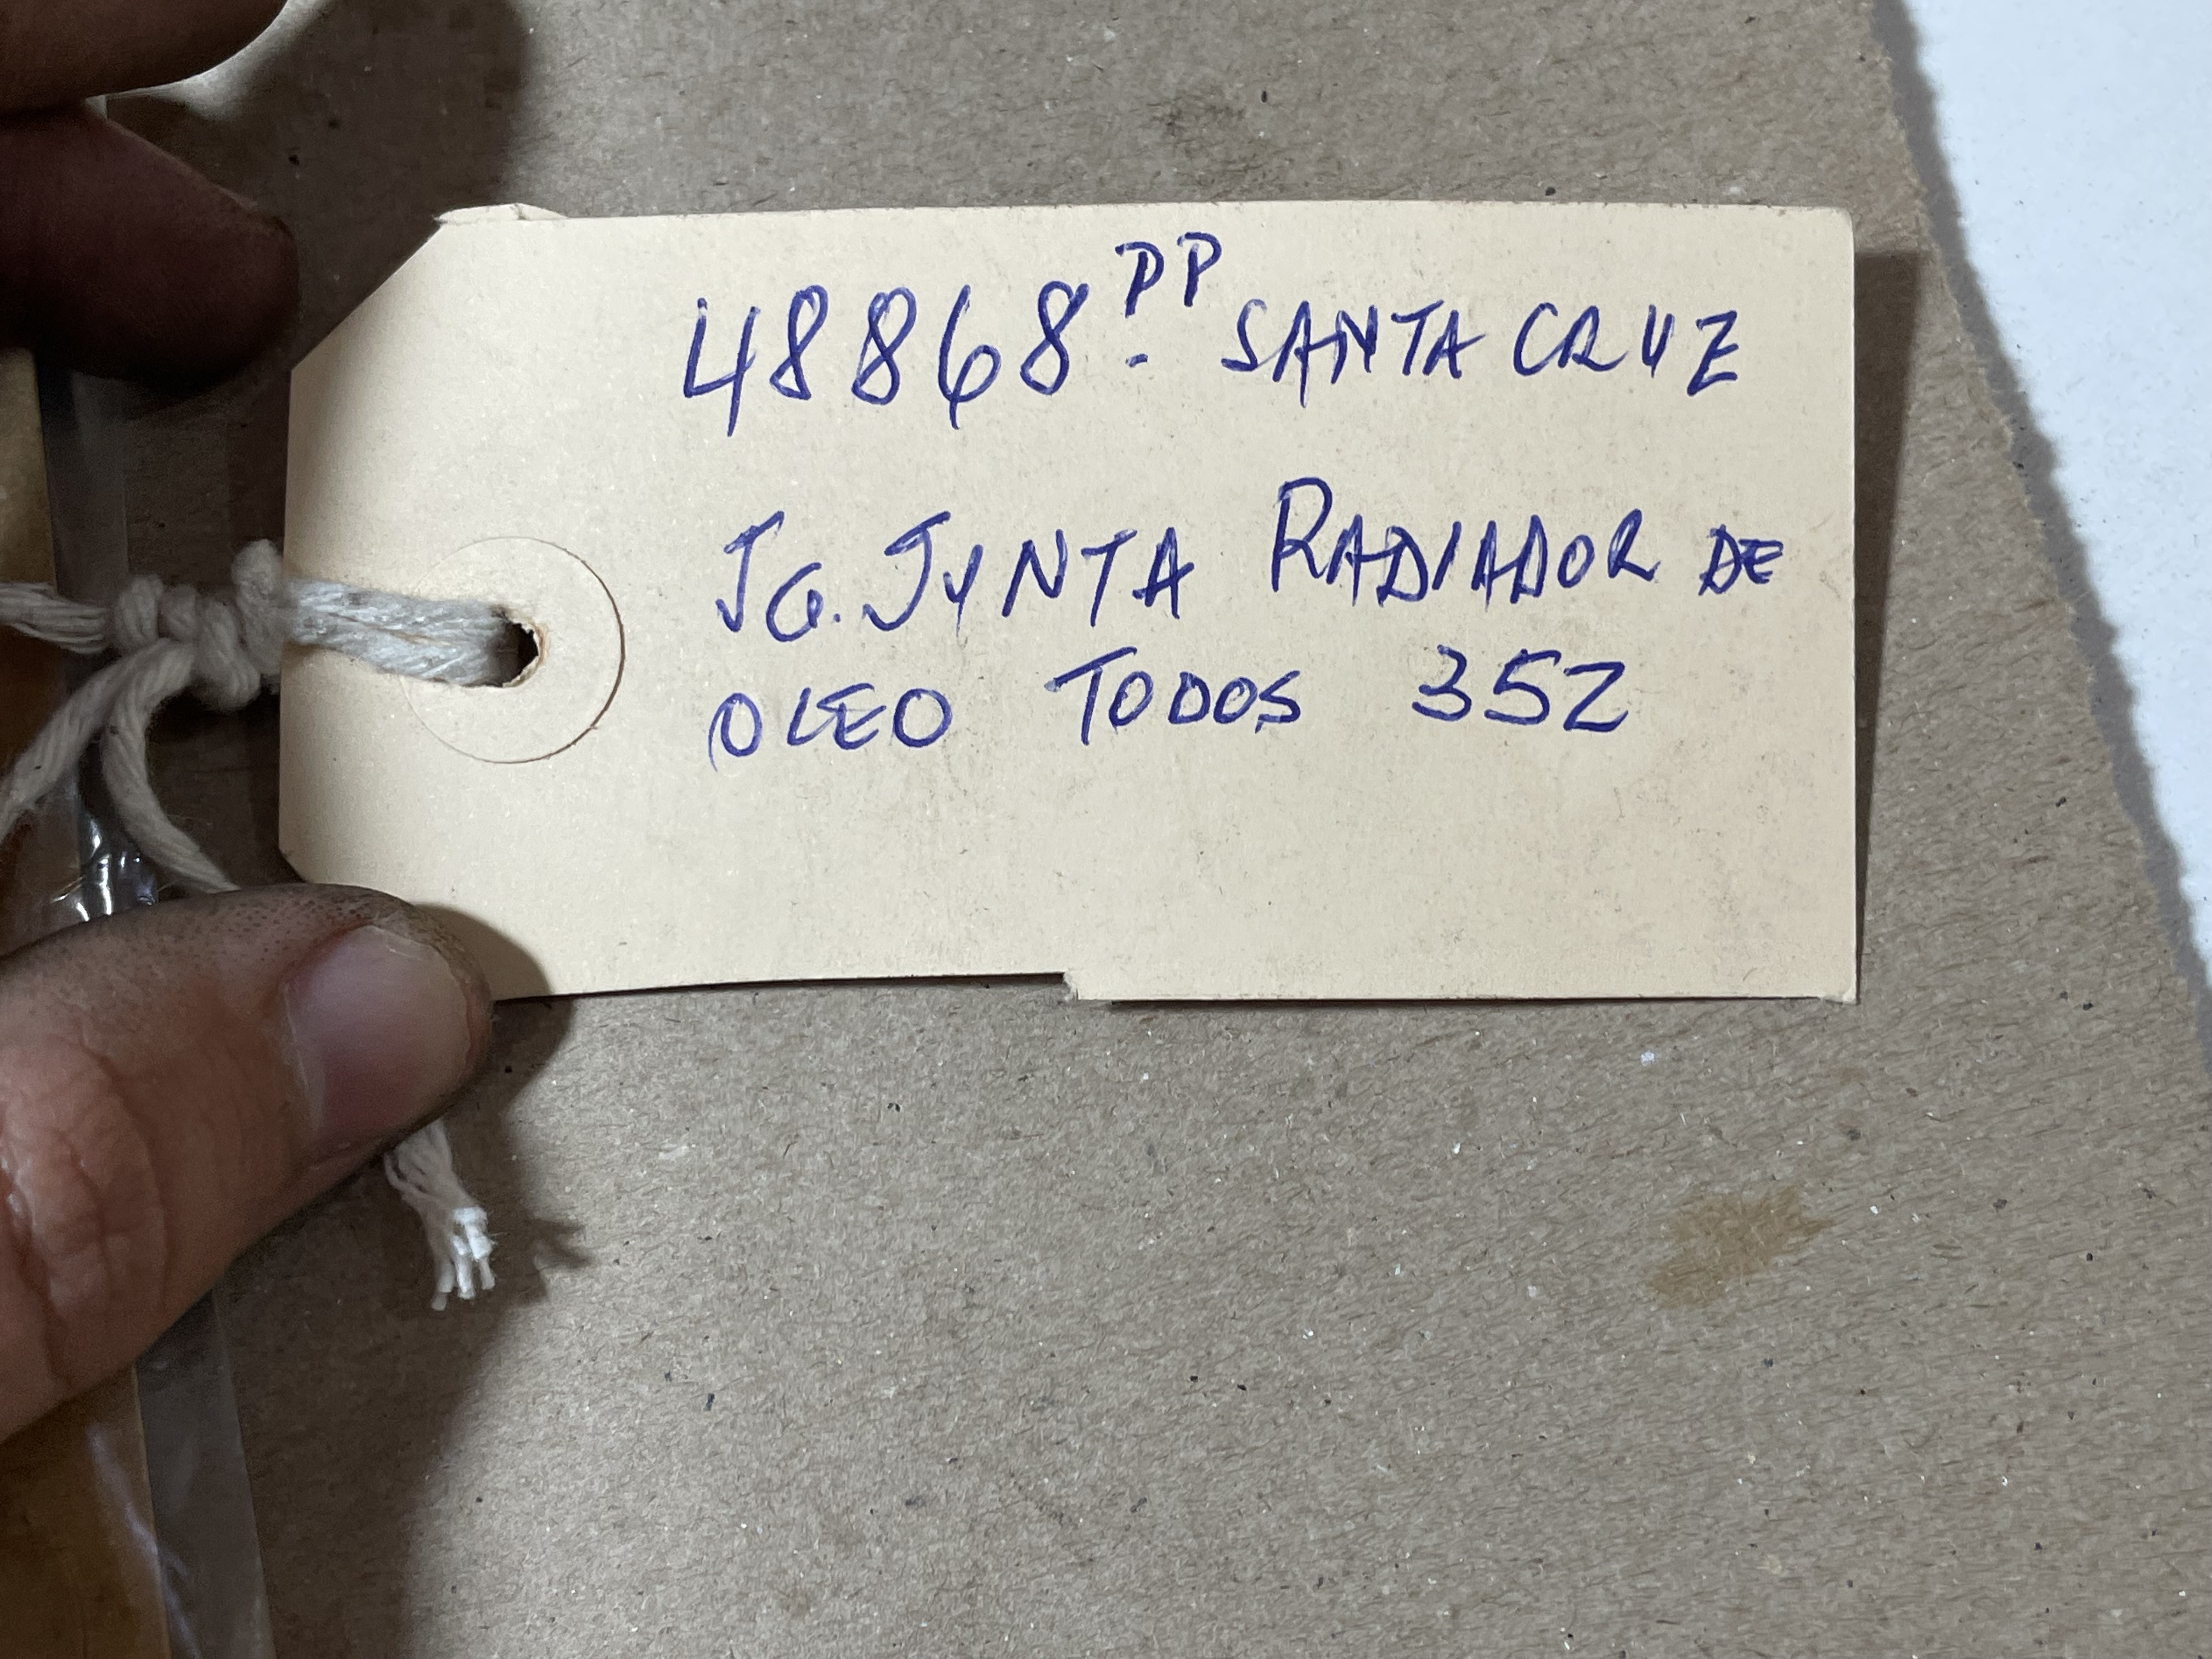 48868PP. SANTA CRUZ
JG. JUNTA RADIADOR DE
OLEO TODOS 352